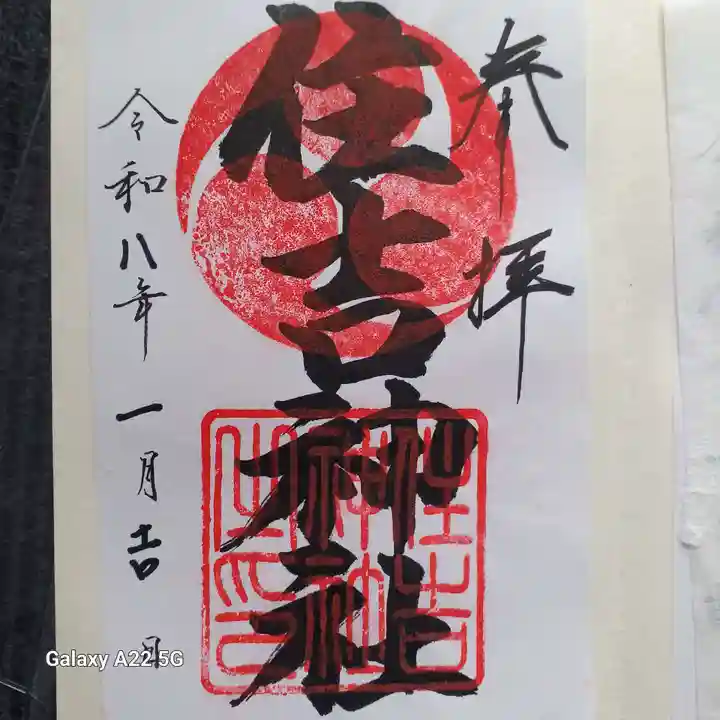 奉拝
住吉神社
住吉
神社
之印
令和八年一月吉日
Galaxy A22 5G